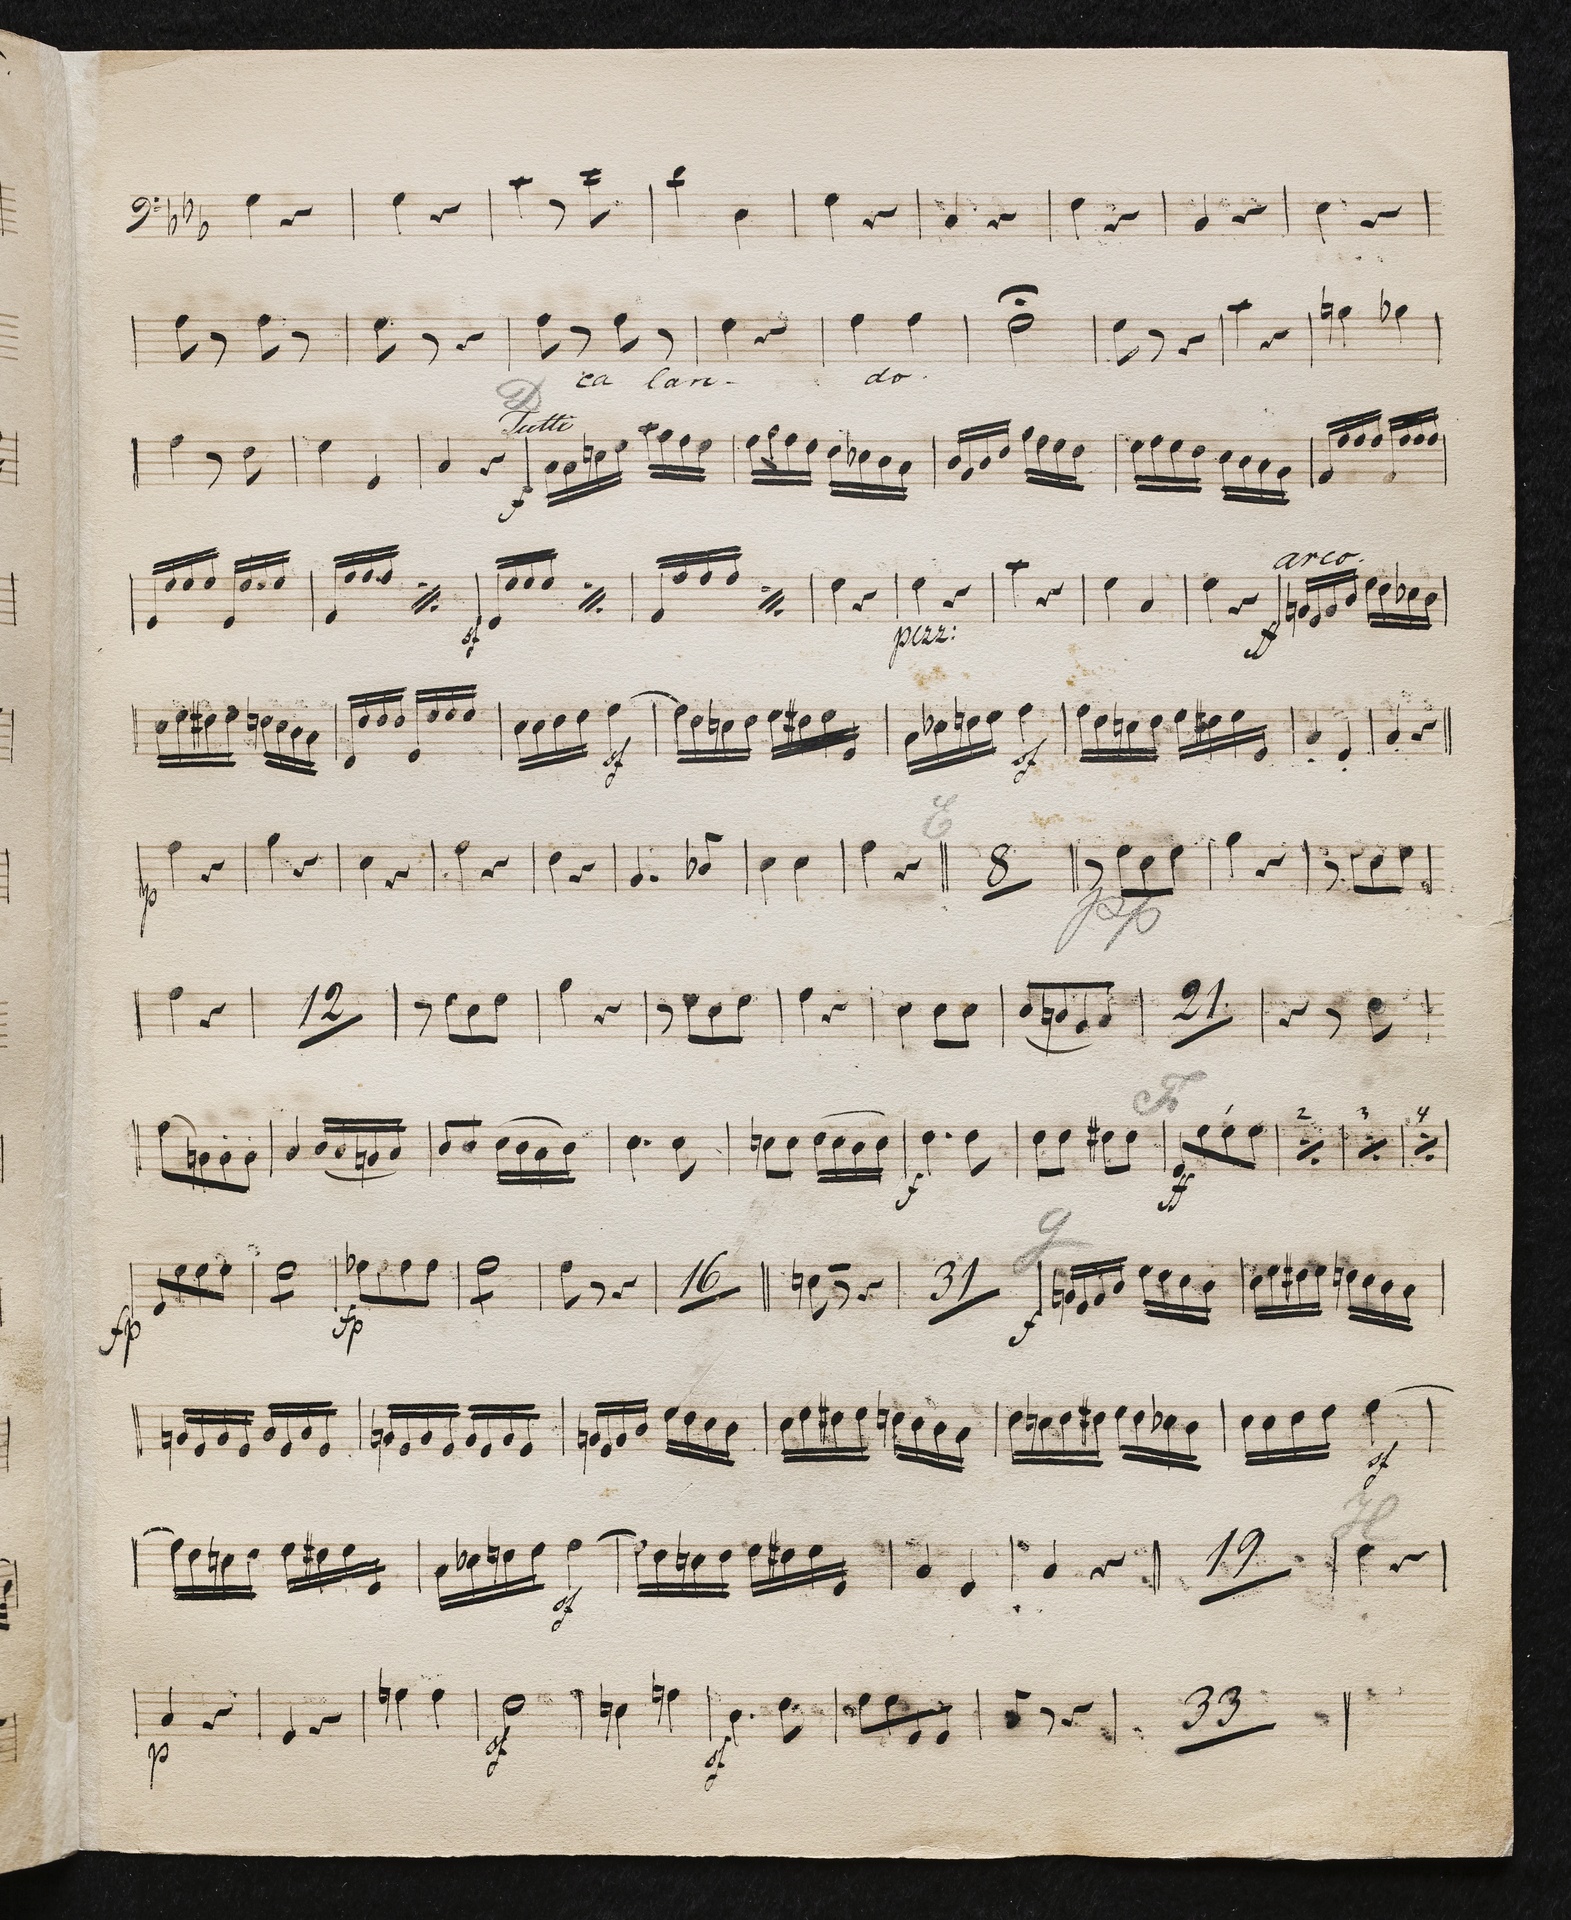 D
ca lan- do.
Tutti
f
arco.
sf pizz: ff
sf sf
E
p 8 pp
12 21
F
2 3 4
f ff
G
16 31
fp fp f
sf
H
19
sf
33
p sf sf